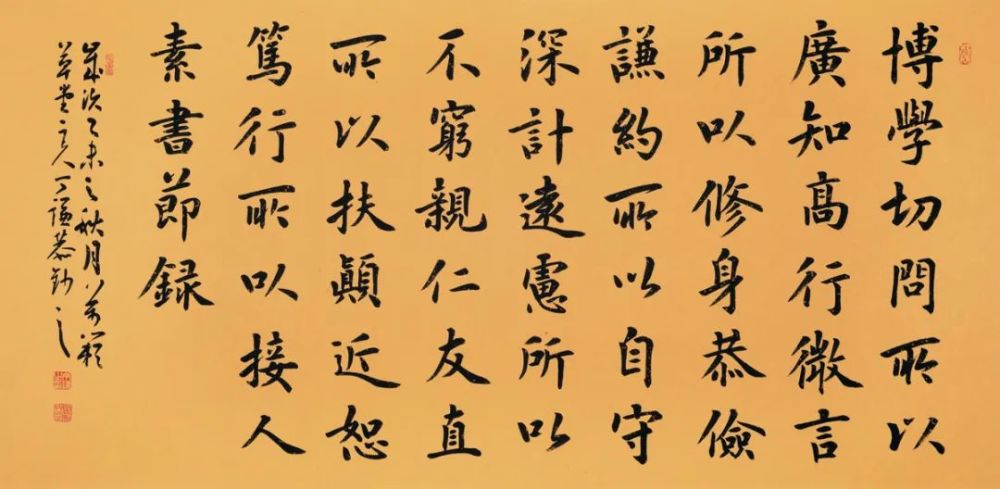 博學切問所以
廣知高行微言
所以修身恭儉
謙約所以自守
深計遠慮所以
不窮親仁友直
所以扶顛近恕
篤行所以接人
素書節録
歲次乙未之秋月
草堂主人丁謙恭鈔之